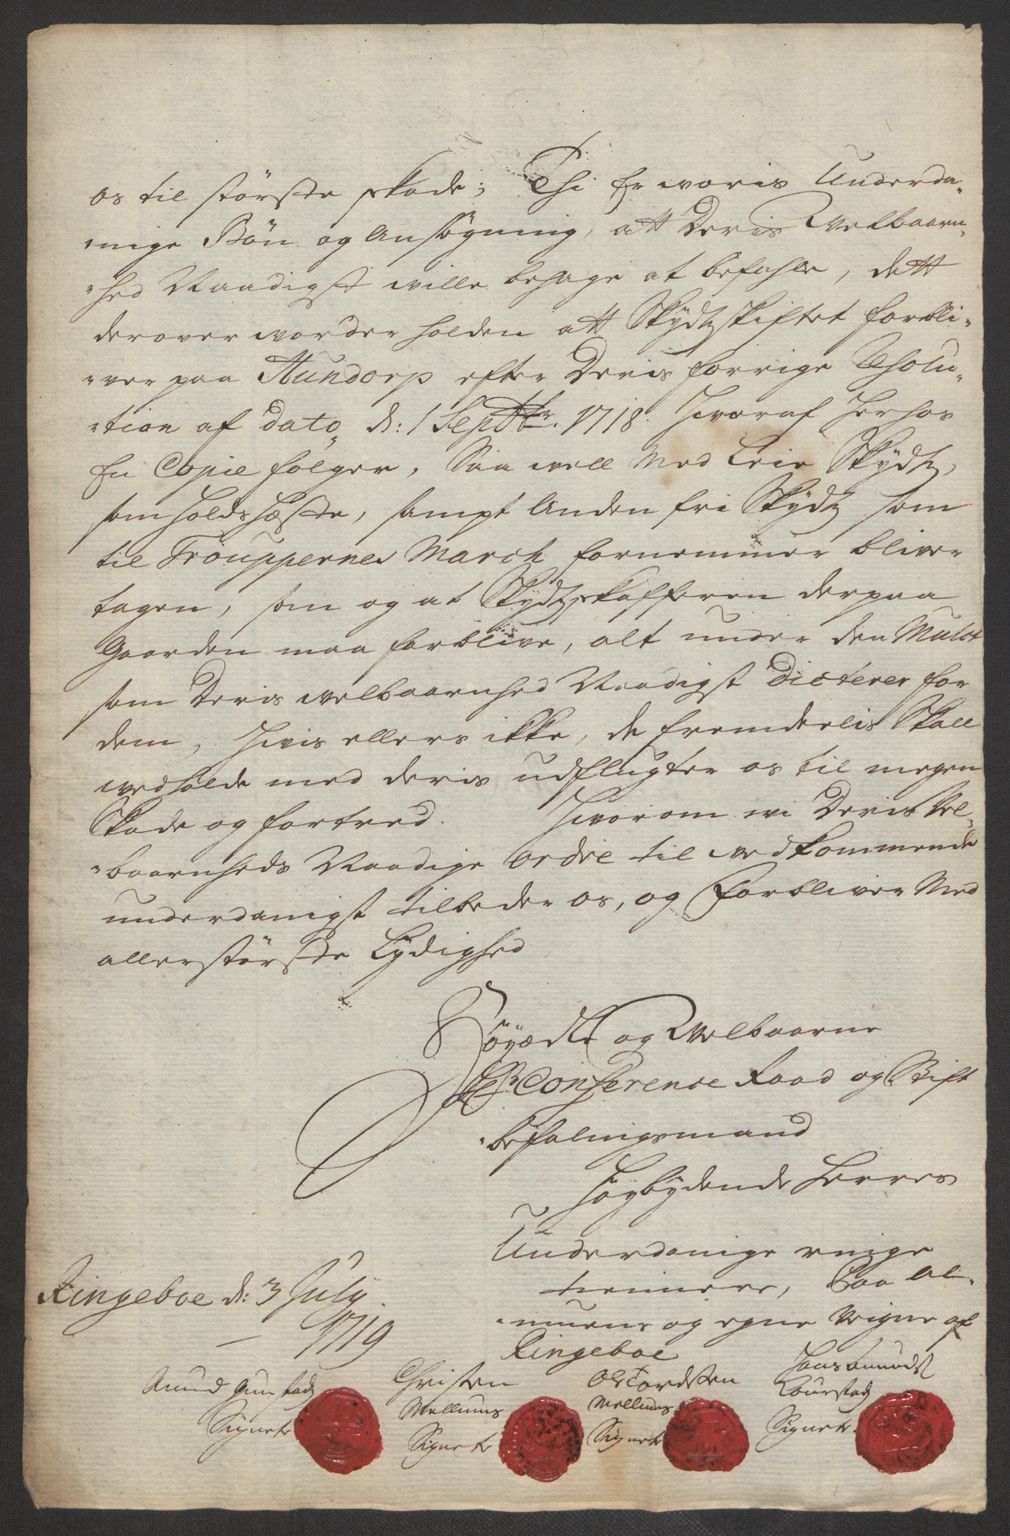 os til störste skade; Thi er woris Underda-
-nige Bön og Ansögning, att Deris Welbaarn-
-hed Naadigst wille behage at befahle, dett
derover worder holden att Skydtzskiftet forbli-
-ver paa Hundorp efter Deris forrige Resolu-
-tion af dato d: 1 Septbr. 1718. Hvoraf Herhos
En Copie fölger, Saa well Med Leie Skydtz,
som holdshæste, sampt Anden fri Skydtz som
til Trouppernes March fornemmer bliver
tagen, som og at Skydtzskafferen derpaa
Gaarden maa forblive, alt under den Mulct
som Deris welbaarnhed Naadigst Dicterer for
dem, Hvis ellers ikke, de fremdelis Skall
wedholde med deris udflugter os til megen
Skade og fortred. Hvorom wi Deris Vel-
-baarnheds Naadige ordre til vedkommende
underdanigst tilbeder os, og Forbliver Med
allerstörste Lydighed
Höyædle og Welbaarne
Hr Conference Raad og Stift
-befalingsmand
Höybydende Herres
Underdanige ringe
tiennere, Paa Al-
-muens og egne Vegne af
Ringeboe
Ringeboe d: 3 July
1719
Amund Gunstad
Signete
Christen
Mellums
Signete
Ole Tordsen
Mellums
Signete
Hans Amunds
Kourstad
Signete